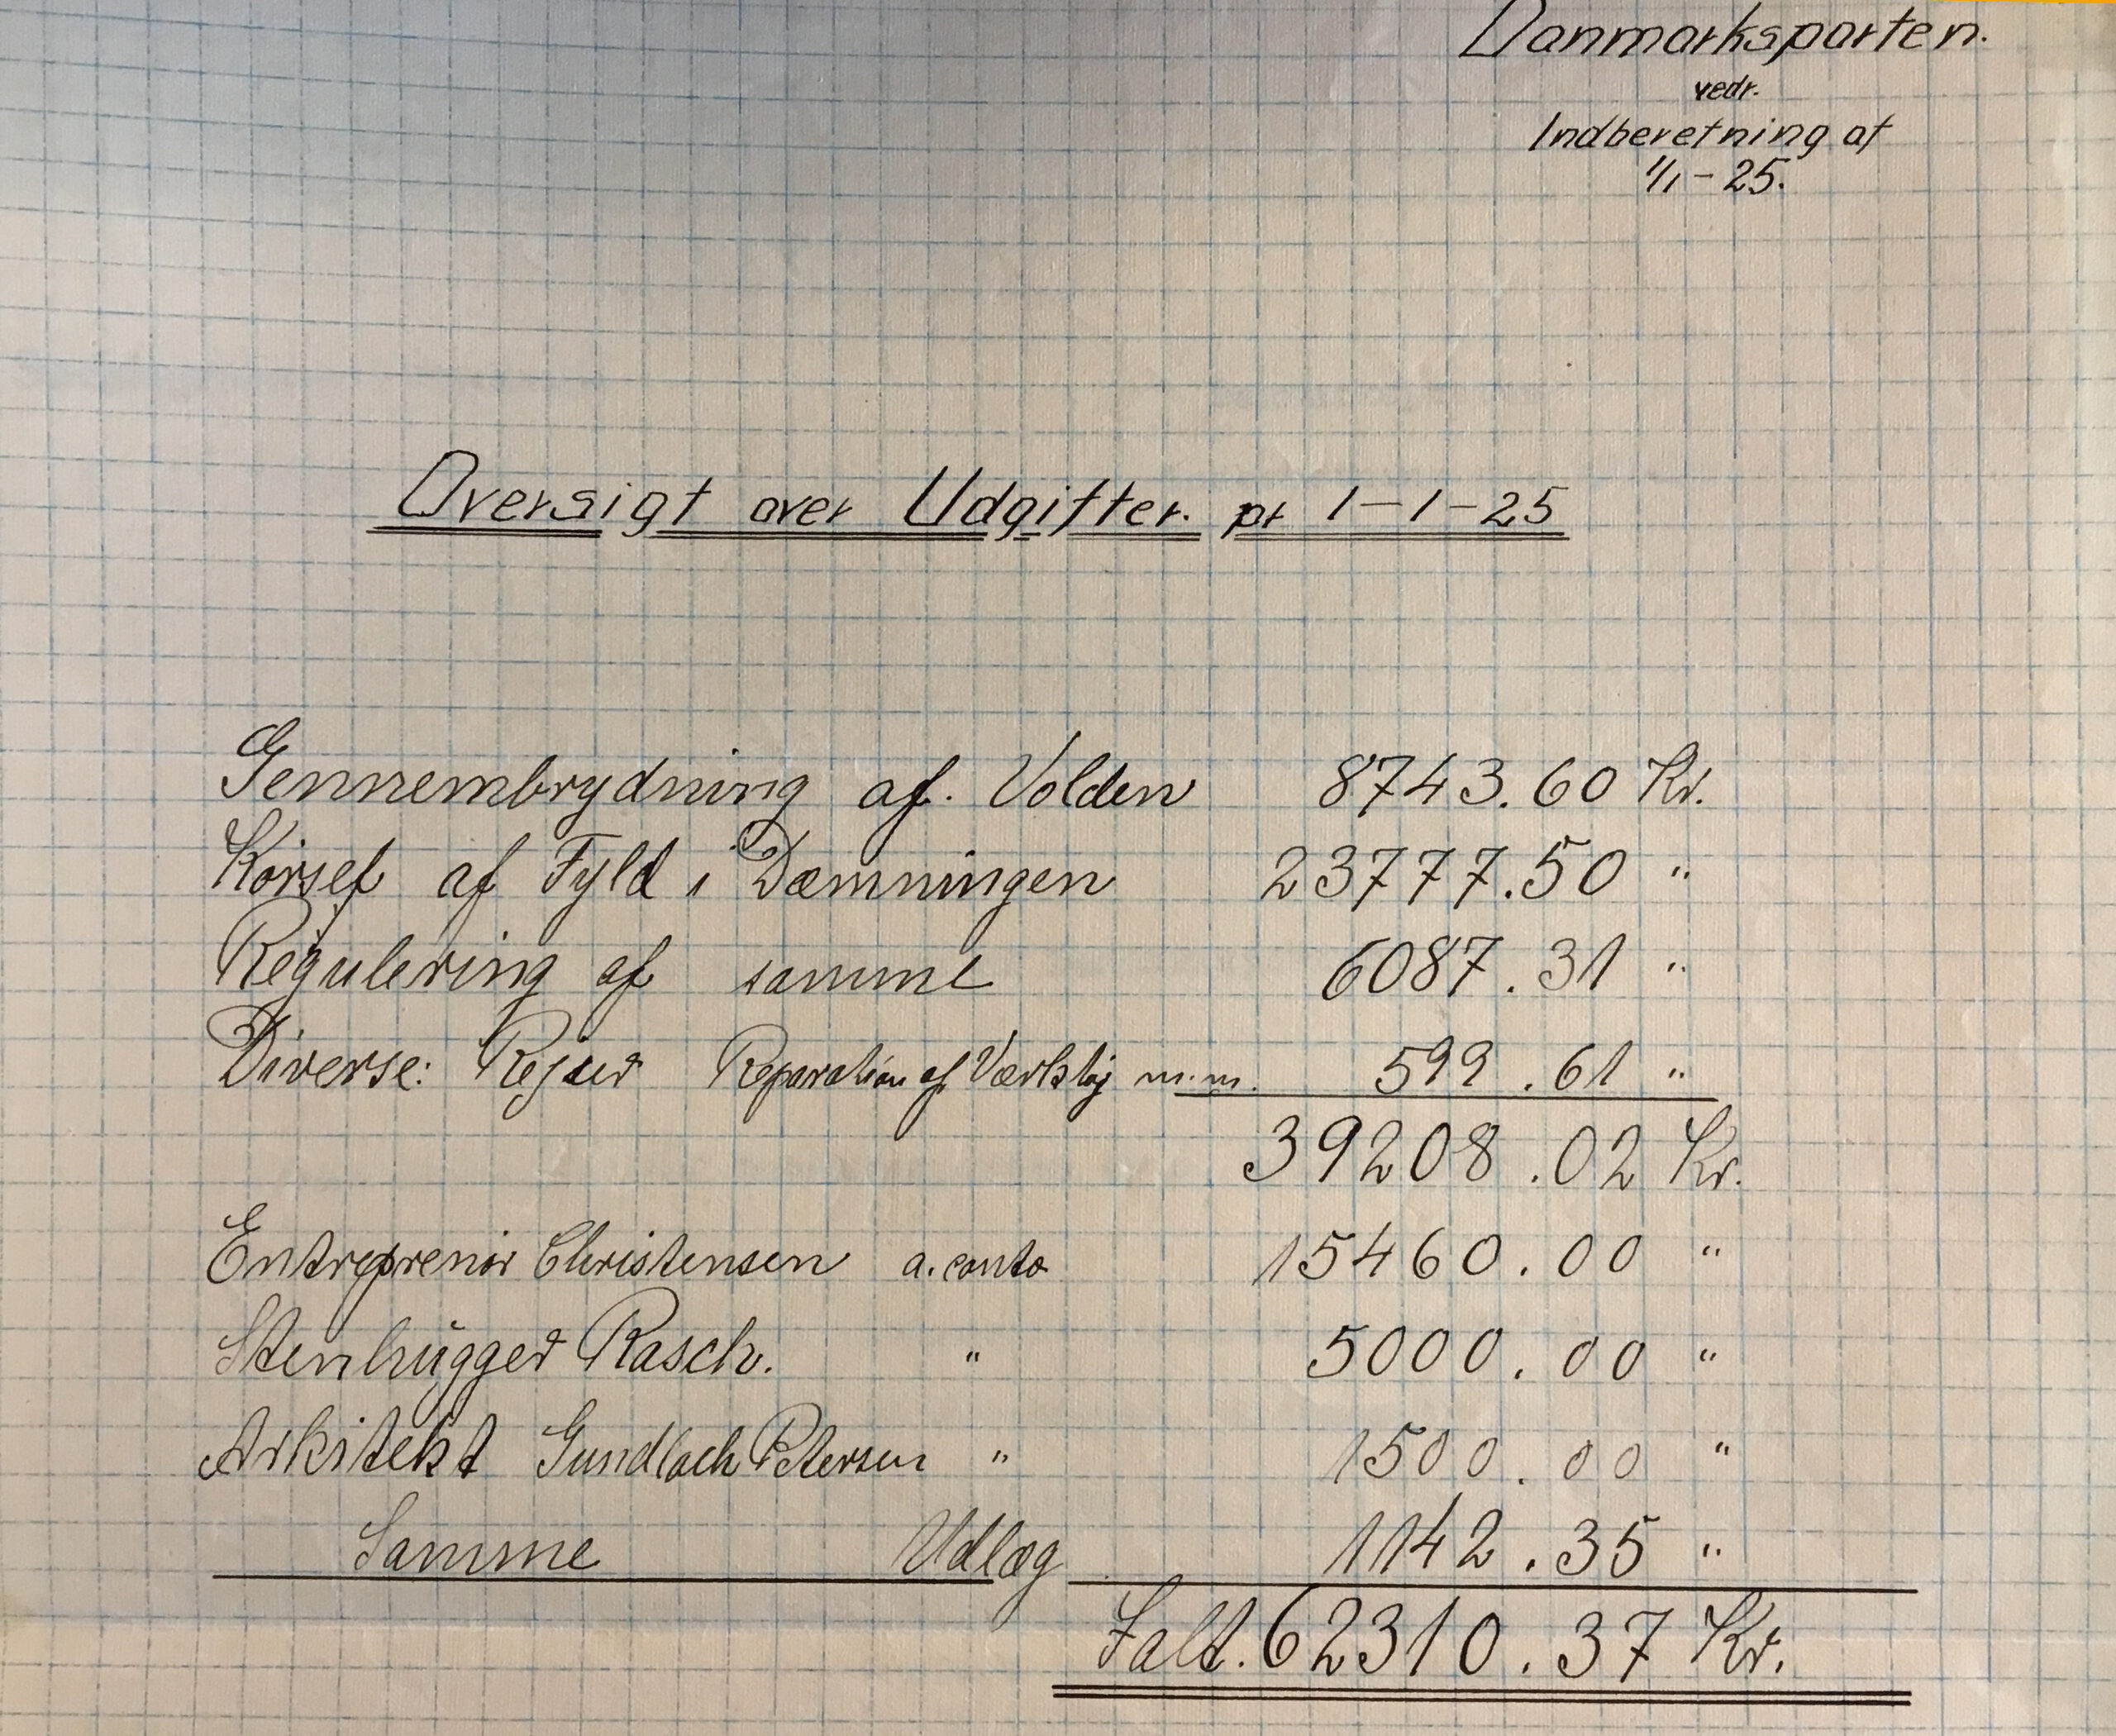 Danmarksporten.
vedr.
Indberetning af
1/1 - 25.
Oversigt over Udgifter. pr 1-1-25
Gennembrydning af. Volden 8743.60 Kr.
Körsel af Fyld i Dæmningen 23777.50 "
Regulering af samme 6087.31 "
Diverse: Rejser Reparation af Værktøj m.m. 599.61 "
39208.02 Kr.
Entreprenör Christensen a. conto 15460.00 "
Stenhugger Rasch. " 5000.00 "
Arkitekt Gundlach Petersen " 1500.00 "
Samme Udlæg 1142.35 "
Ialt. 62310.37 Kr.